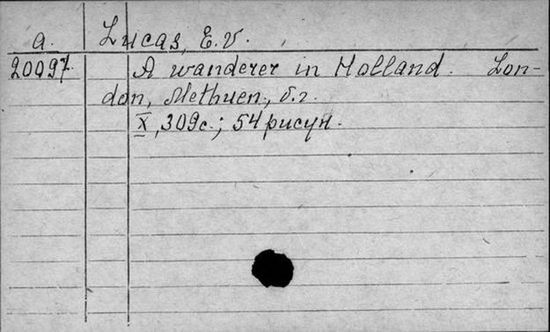 a. Lucas, E.V.
20097. A wanderer in Holland. Lon-
don, Methuen, б.г.
X, 309с.; 54 рисун.